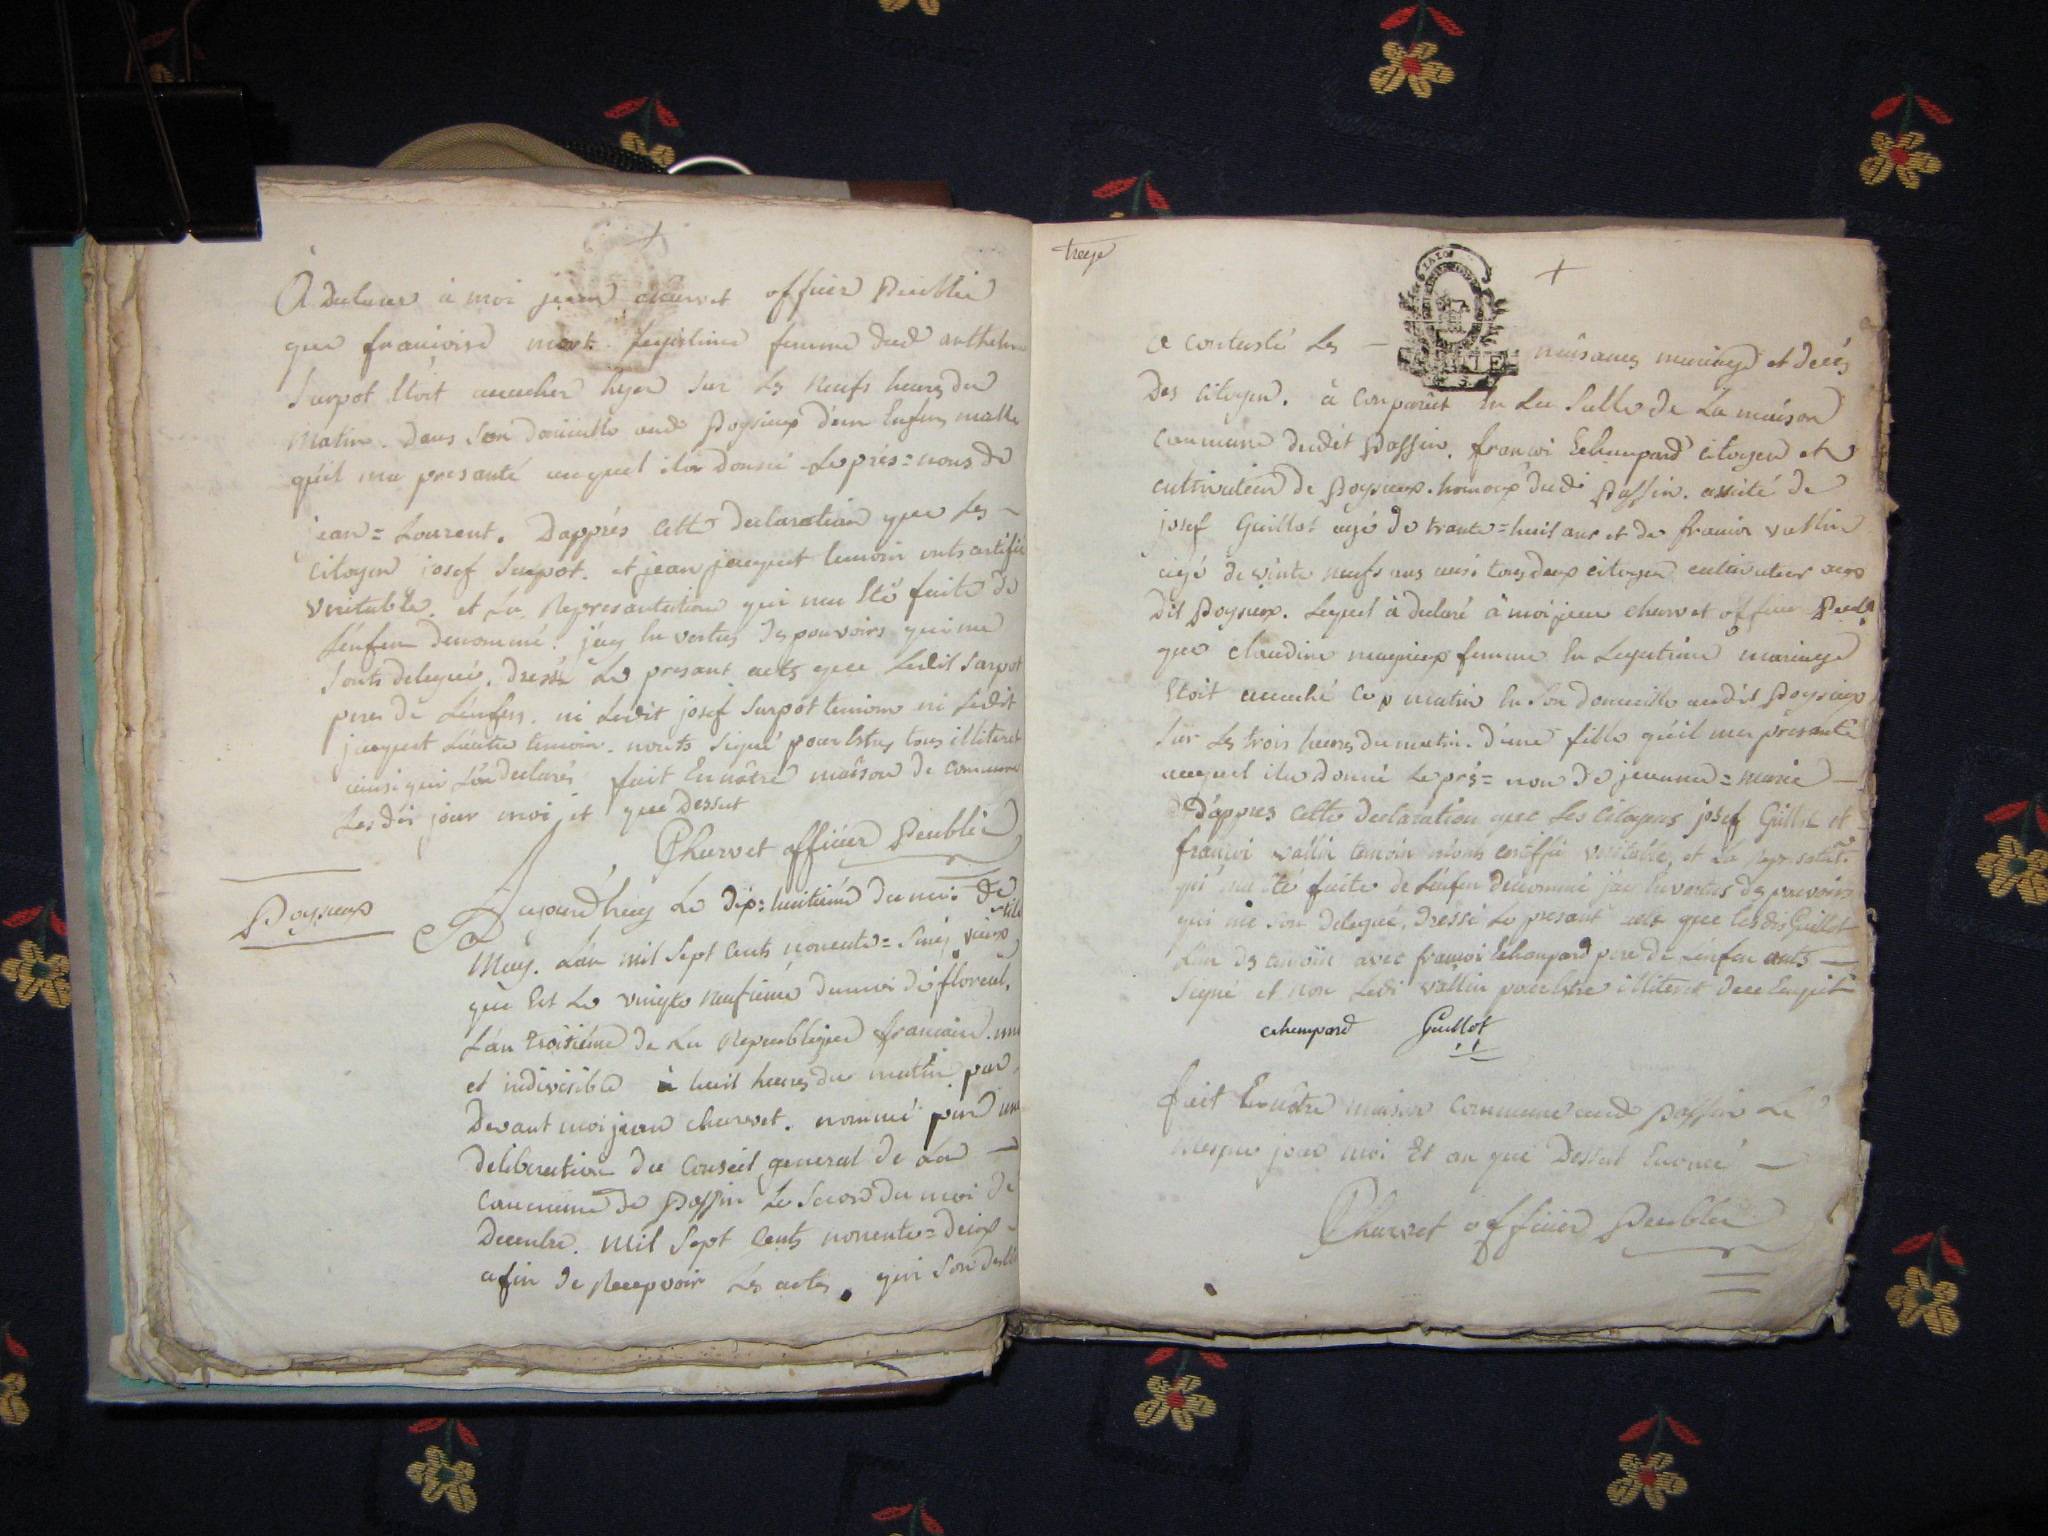 À Declarer à moi jean charvet officier Peublic
que francoise mart legistime femme dud anthelme
Surpot Etoit accucher hyer sur Les neufs heures du
matin. Dans Son domicille aud Poysieux d'un Enfens malle
qu'il ma presanté auquel ila donné Le prés=nous de
jean=Lourent. Dapprés Cette declaration que Les
Citoyen josef Surpot. et jean jacquet temoin onts certifié
veritable. et La Represantation qui ma Eté faite de
L'enfen denommé. j'ay En vertus des pouvoirs qui me
Sonts delegué. Dressé Le presant acts que Ledit Surpot
pere de L'enfen. ni Ledit josef Surpot temoin ni Ledit
jacquet L'autre temoin. nonts Signé pour Estre tous illiteret
ainsi qui L'on declarés fait En nôtre maison de commune
Les dis jour moi et que Dessut
Charvet officier Peublic
Poysieux
Aujourd'huy Le dix=huitième du moi de
May. L'an mil Sept Cents nonente=Sinq vieux stile
que Est Le vingte neufieme du moi de floreal,
L'an troisiéme de La Republique francaise. une
et indivisible à huit heures du matin par
Devant moi jean charvet. nommé par une
deliberation du Conseil general de La
Commune de Passin Le Second du moi de
Decembre. mil Sept Cents nonente=deux
afin de Recepvoir Les actes. qui Son desti
treze
a contesté Les naisances mariage et Decés
Des Citoyen. à Conparut En La Salle de La maison
Commune dudit Passin. francoi Echampard Citoyen et
cultivateur de Poysieux. hameaux dud Passin. assité de
josef Guillot agé de trante=huit ans et de francoi vallin
agé de vinte neufs ans aussi tous deux citoyen cultivateur au
dit Poysieux. Lequel à declaré à moi jean charvet officier Peub
que claudine magnieux femme En Legitime mariage
Etoit accuché Ce matin En Son domicille audit Poysieux
Sur Les trois heures du matin. d'une fille qu'il ma présanté
auquel ila donné Le pré=non de jeanne=marie
D'appres Cette declaration que Les Citoyens josef Guillot et
francoi vallin temoin monts certiffié veritable, et La
qui ma Eté faite de L'enfen denommé j'ay En vertus des pouvoirs
qui me Son delegué, Dressé Le presant acts que Ledis Guillot
L'un des temoin avec francoi Echampard pere de L'enfen onts
Signé et non Ledi vallin pour Estre illiteret
echampard Guillot
fait En nôtre maison Commune aud Passin Le
mesme jour moi Et an que Dessut Enoncé
Charvet officier Peublic